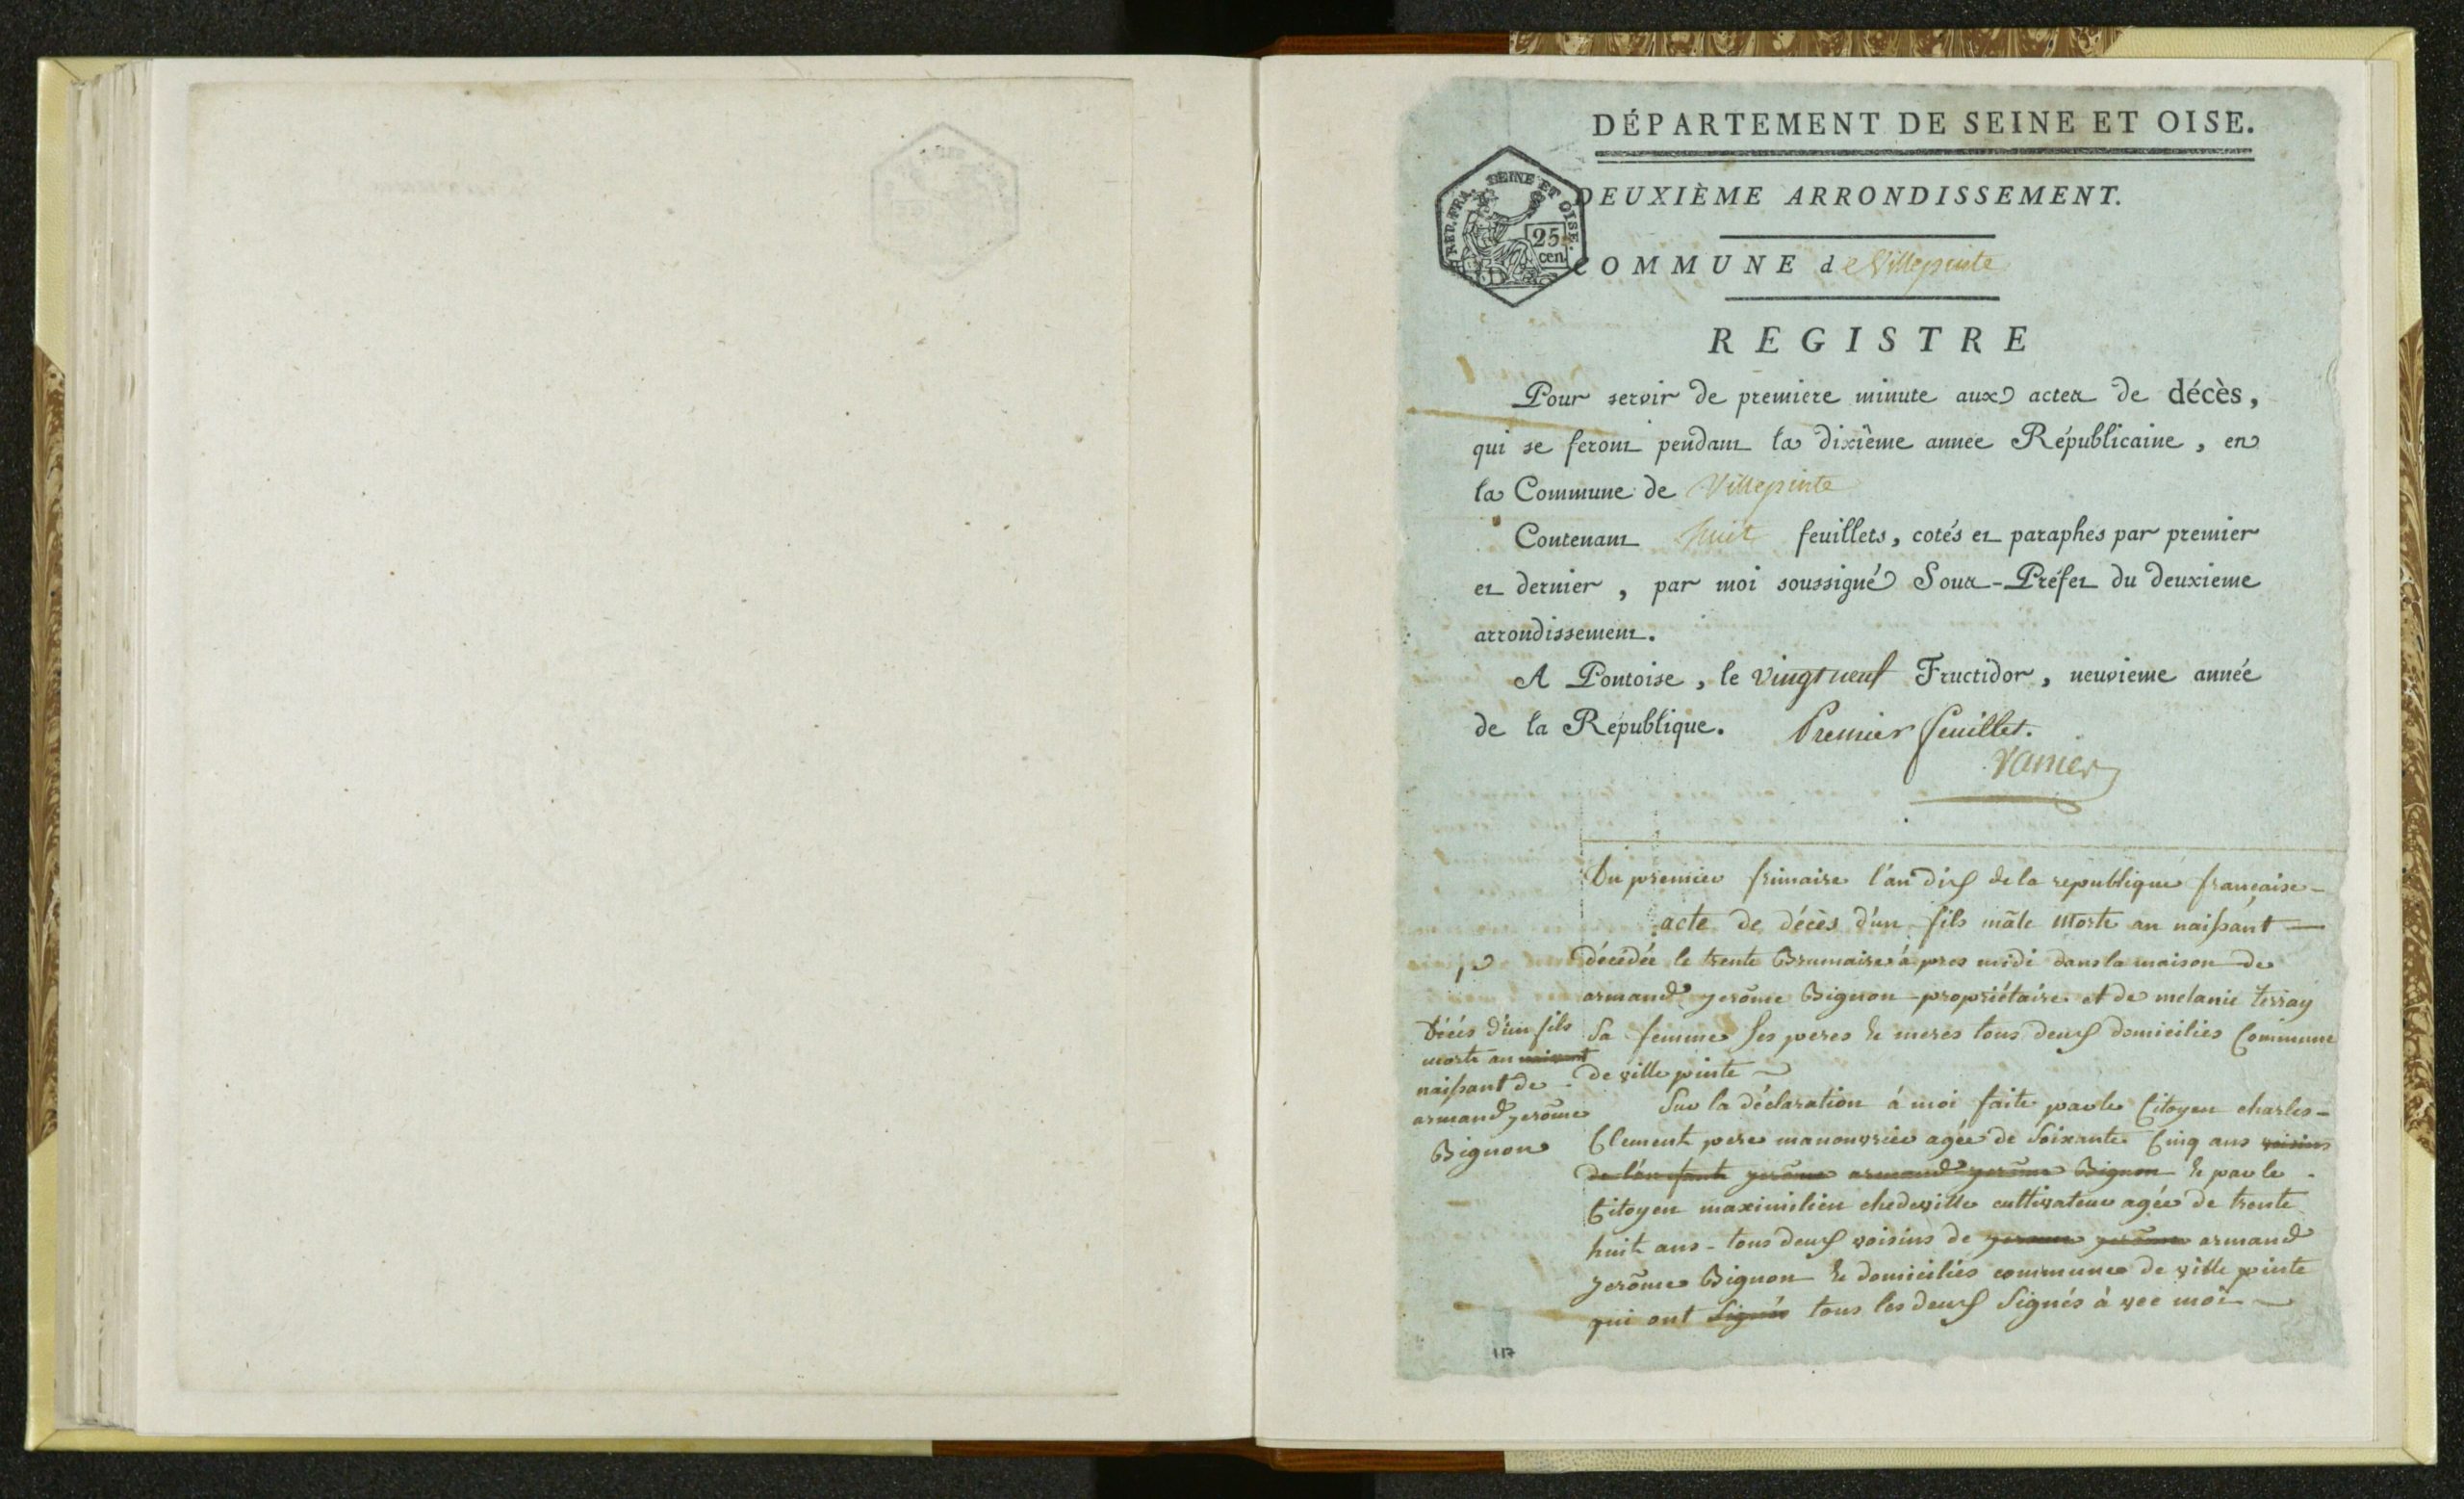 DÉPARTEMENT DE SEINE ET OISE.
REP. FRA. SEINE ET OISE.
25
cen
DEUXIÈME ARRONDISSEMENT.
COMMUNE de Villepinte
REGISTRE
Pour servir de premiere minute aux actes de décès,
qui se feront pendant la dixième année Républicaine, en
la Commune de Villepinte
Contenant huit feuillets, cotés et paraphés par premier
et dernier, par moi soussigné Sous-Préfet du deuxieme
arrondissement.
A Pontoise, le vingt neuf Fructidor, neuvieme année
de la République. Premier feuillet.
Vanier
Du premier frimaire l'an dix de la republique française -
acte de décès d'un fils mâle morte an naissant —
décédée le trente Brumaire à pres midi dans la maison de
armand jerôme Bignon propriétaire et de melanie terray
Sa femme Ses peres & meres tous deux domiciliés Commune
de ville pinte
Décés d'un fils
morte an naissant
naissant de
armand jerôme
Bignon
Sur la déclaration à moi faite par le Citoyen charles -
Clement pere manouvrier agée de Soixante Cinq ans voisins
de l'enfante jerôme armand jerôme Bignon & par le
Citoyen maximilien chedeville cultivateur agée de trente
huit ans - tous deux voisins de jerôme armand
jerôme Bignon & domiciliés commune de ville pinte
qui ont Signés tous les deux Signés à vec moi
117